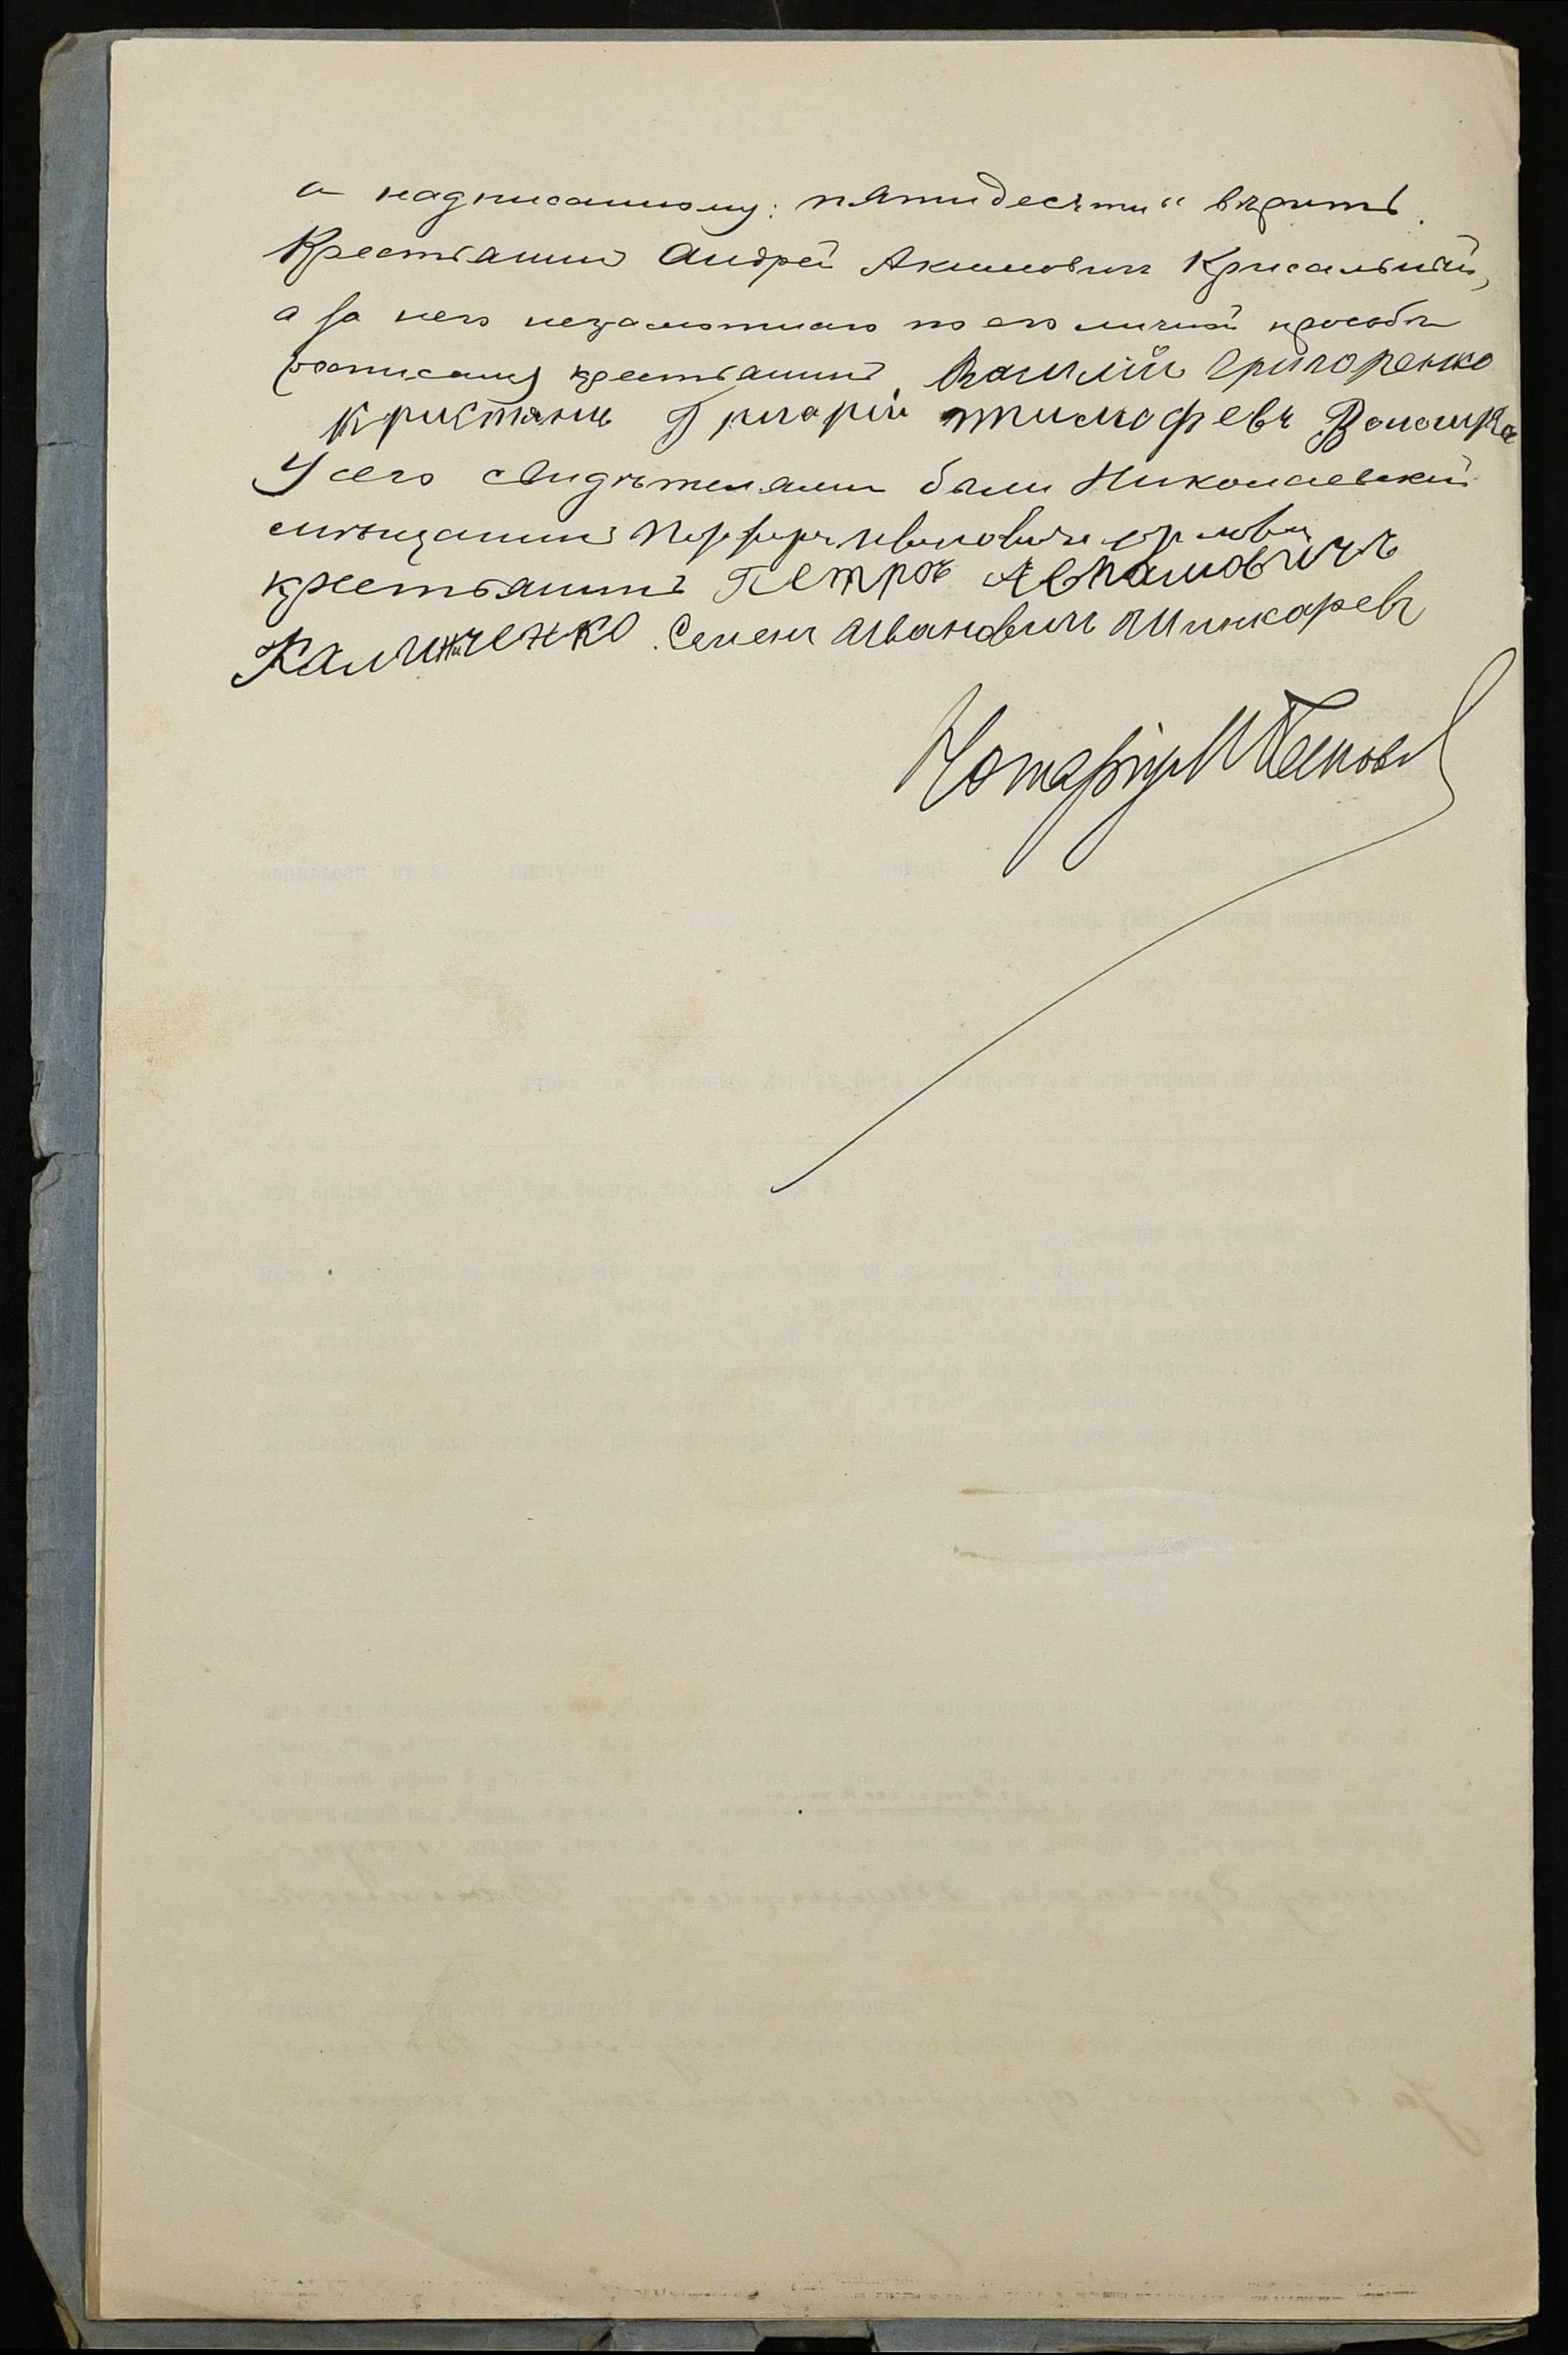 а надписанному: пятидесяти" вѣрить.
Крестьянинъ Андрей Акимовичъ Крисальный,
а за него неграмотнаго по его личной просьбѣ
росписался крестьянинъ Василій Григоренко
Кристянинъ Григорій Тимофевъ Волошка
У сего свидѣтелями были Николаевскій
мѣщанинъ Порфирій Ивановичъ
крестьянинъ Петръ Авраамовичъ
Калиниченко. Семенъ Ивановичъ Шинкаревъ
Нотаріусъ